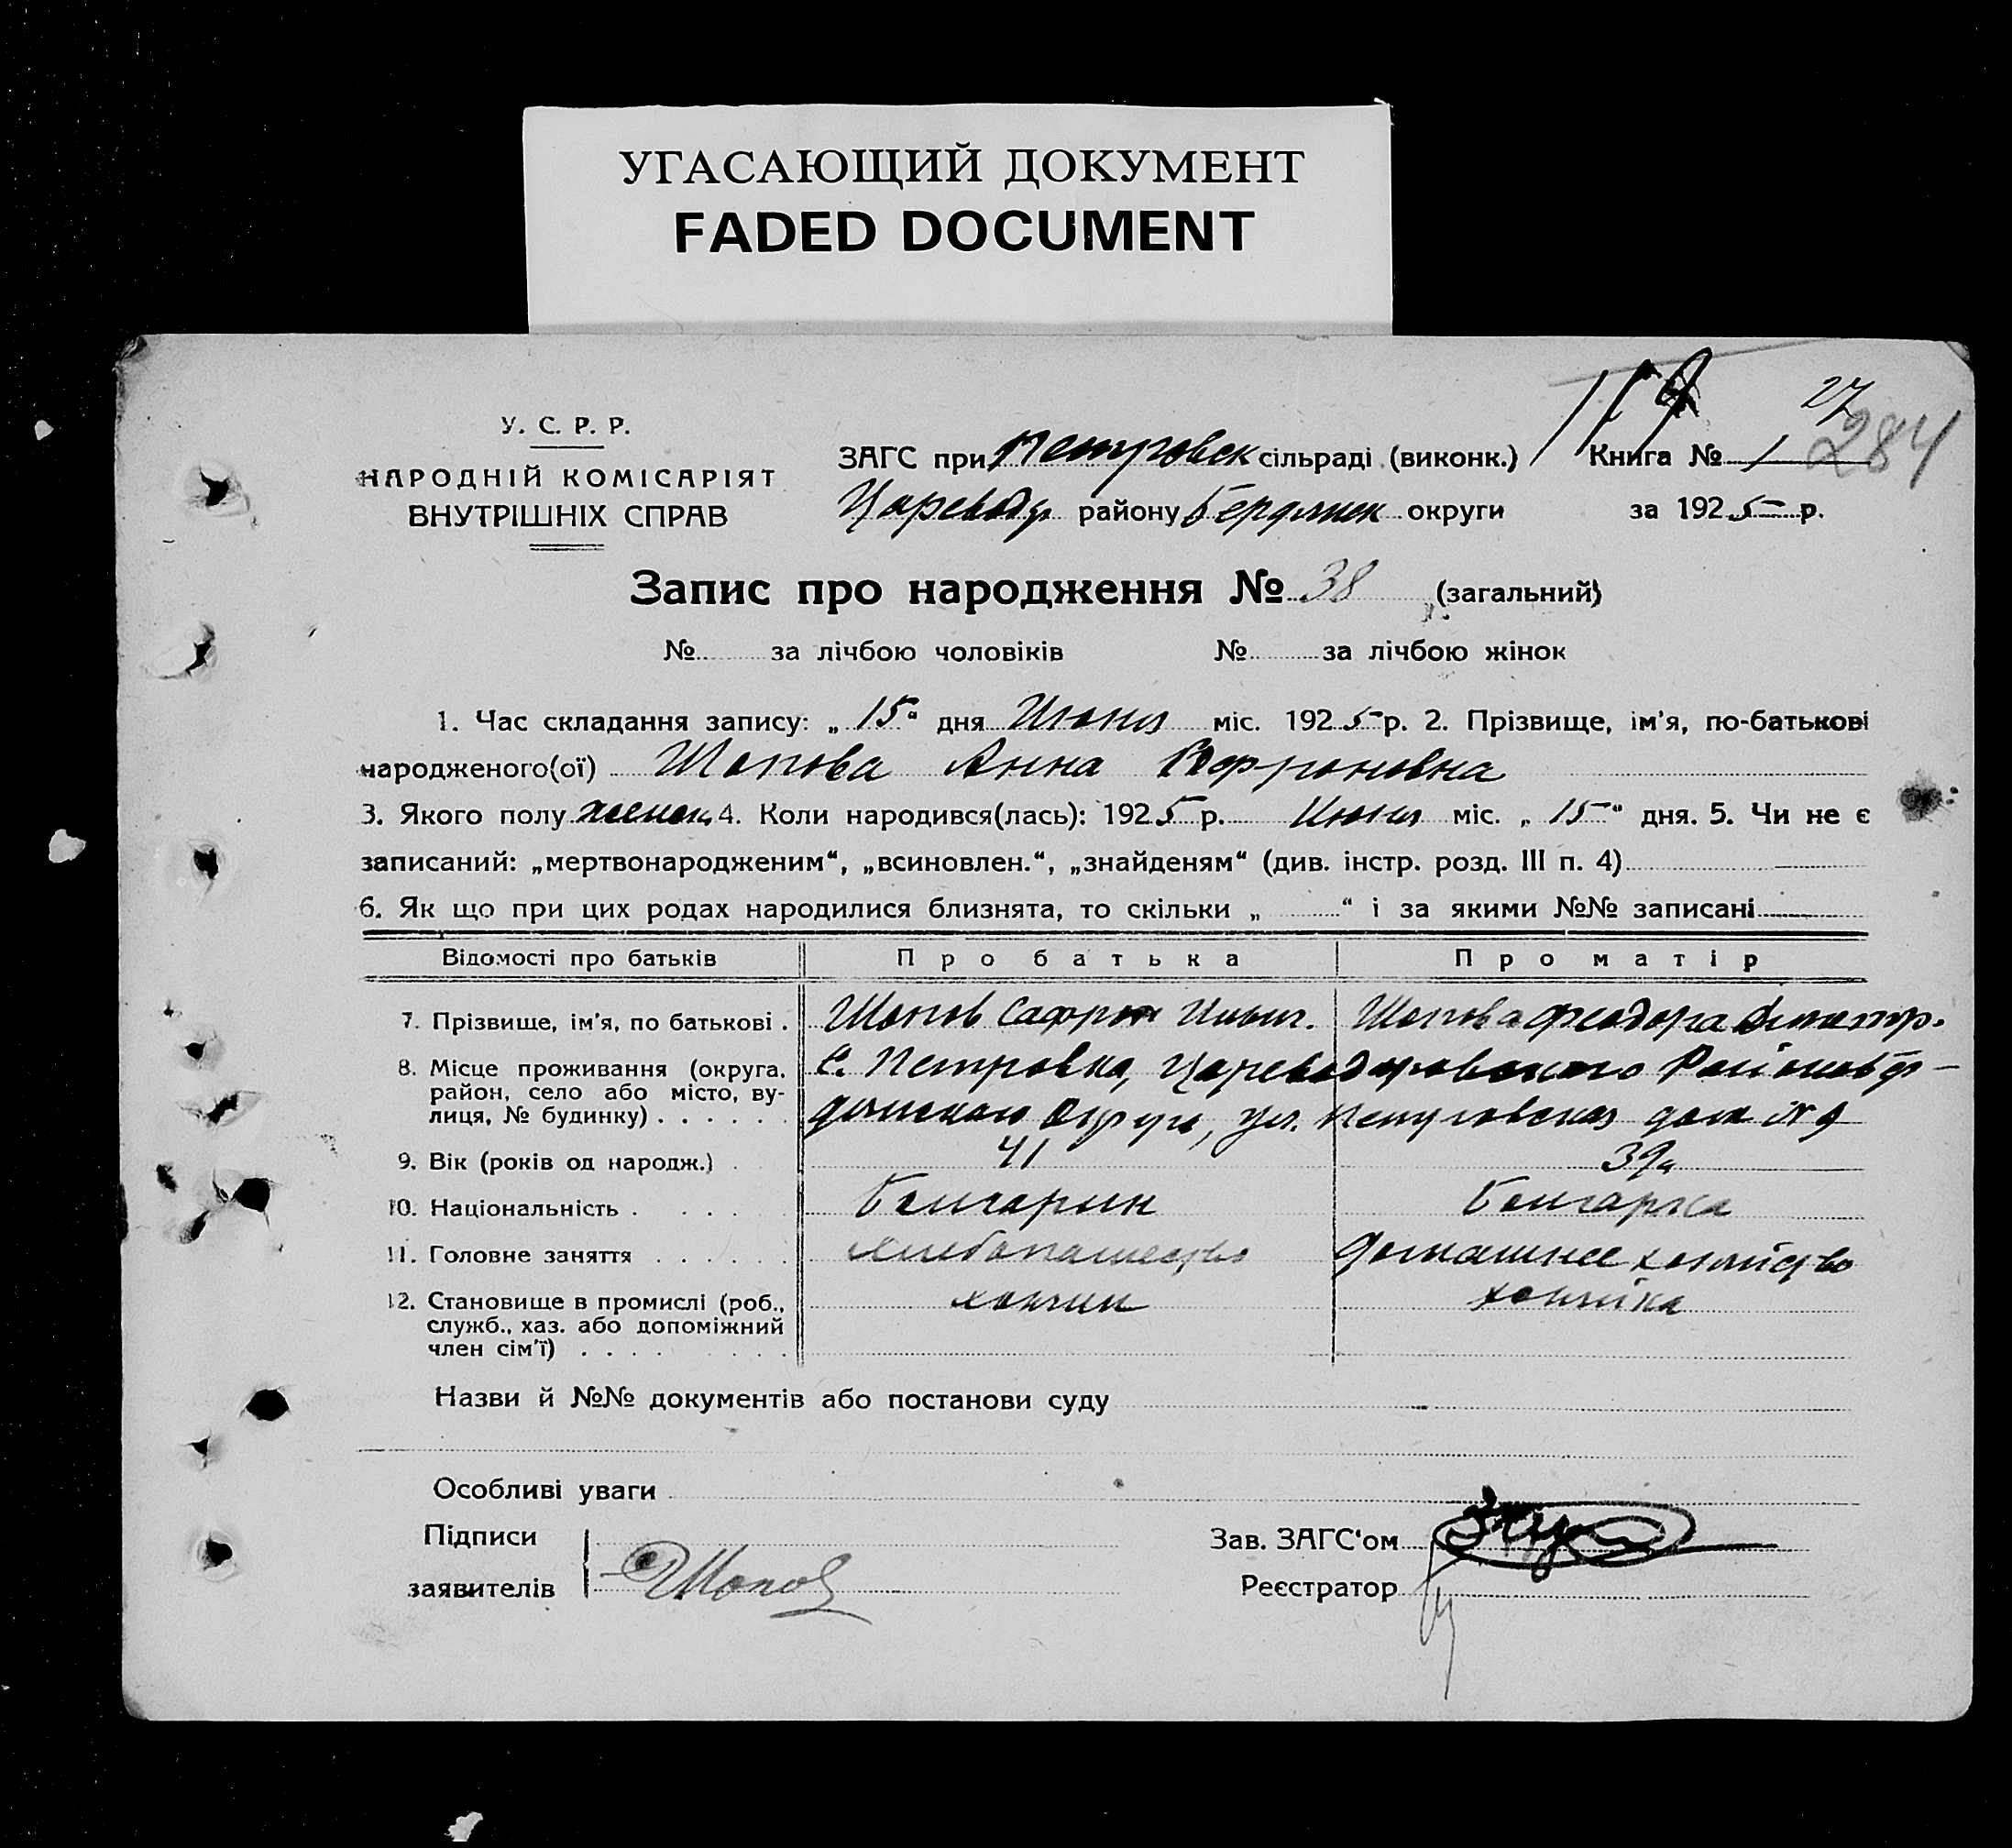 УГАСАЮЩИЙ ДОКУМЕНТ
FADED DOCUMENT
27
284
У. С. Р. Р.
НАРОДНІЙ КОМІСАРІЯТ
ВНУТРІШНІХ СПРАВ
ЗАГС при Петровск сільраді (виконк.) Книга № 1
Цареводр району Бердянск округи за 1925 р.
Запис про народження № 38 (загальний)
№ за лічбою чоловіків № за лічбою жінок
1. Час складання запису: „ 15 " дня Июня міс. 1925 р. 2. Прізвище, ім'я, по-батькові
народженого(ої) Шопова Анна Софроновна
3. Якого полу женск. 4. Коли народився(лась): 1925 р. Июня міс. „ 15 " дня. 5. Чи не є
записаний: „мертвонародженим“, „всиновлен.“, „знайденям“ (див. інстр. розд. III п. 4)
6. Як що при цих родах народилися близнята, то скільки „ “ і за якими №№ записані
Відомості про батьків Про батька Про матір
7. Прізвище, ім'я, по батькові . Шопов Сафрон Шопова Феодора Дмитр.
8. Місце проживання (округа, С. Петровка, Цареводаровского Района Бер-
район, село або місто, ву-
лиця, № будинку) . . . . . . дянского Округа, ул. Петровская дом № 9
9. Вік (років од народж.) . 41 39
10. Національність . . . . Болгарин Болгарка
11. Головне заняття . . . . . . Хлебопашество Домашнее хозяйство
12. Становище в промислі (роб., хозяин хозяйка
служб., хаз. або допоміжний
член сім'ї) . . . . . . . .
Назви й №№ документів або постанови суду
Особливі уваги
Підписи Зав. ЗАГС'ом
заявителів Шопов Реєстратор